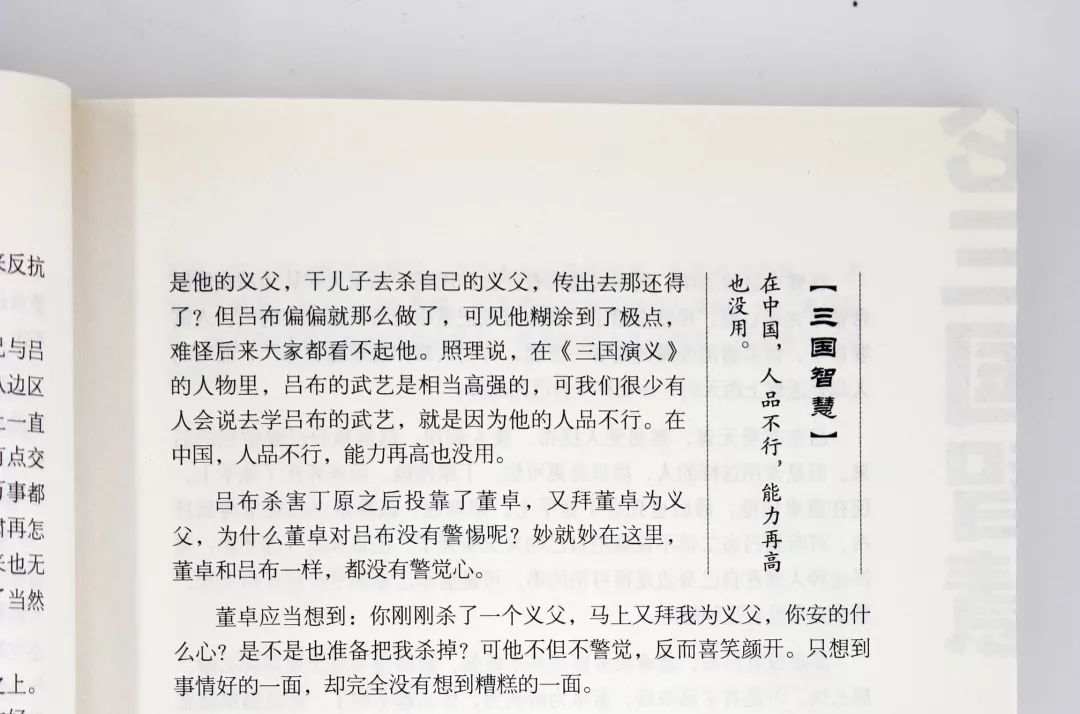 来反抗
己与吕
人边区
上一直
有点交
万事都
肃再怎
来也无
了当然
之上。
是他的义父，干儿子去杀自己的义父，传出去那还得
了？但吕布偏偏就那么做了，可见他糊涂到了极点，
难怪后来大家都看不起他。照理说，在《三国演义》
的人物里，吕布的武艺是相当高强的，可我们很少有
人会说去学吕布的武艺，就是因为他的人品不行。在
中国，人品不行，能力再高也没用。
吕布杀害丁原之后投靠了董卓，又拜董卓为义
父，为什么董卓对吕布没有警惕呢？妙就妙在这里，
董卓和吕布一样，都没有警觉心。
董卓应当想到：你刚刚杀了一个义父，马上又拜我为义父，你安的什
么心？是不是也准备把我杀掉？可他不但不警觉，反而喜笑颜开。只想到
事情好的一面，却完全没有想到糟糕的一面。
【三国智慧】
在中国，人品不行，能力再高
也没用。